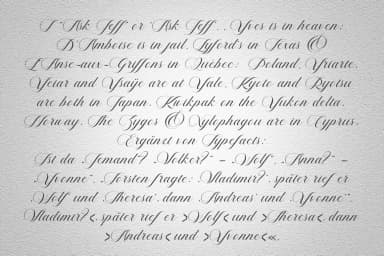 I “Ask Jeff” or ‘Ask Jeff’. Yves is in heaven;
D’Amboise is in jail. Lyford’s in Texas &
L’Anse-aux-Griffons in Québec; Poland. Yriarte,
Yciar and Ysaÿe are at Yale. Kyoto and Ryotsu
are both in Japan, Kwikpak on the Yukon delta,
Norway. The Zyges & Xylophagou are in Cyprus,
Ergänzt von Typefacts:
„Ist da ‚Jemand‘? ‚Volker?‘“ – „Wolf“, „Anna?“ –
„Yvonne“. Torsten fragte: „Vladimir?“, später rief er
„Wolf‘ und ‚Theresa‘, dann ‚Andreas‘ und ‚Yvonne‘“.
Vladimir?‹, später rief er ›Wolf‹ und ›Theresa‹, dann
›Andreas‹ und ›Yvonne‹«.